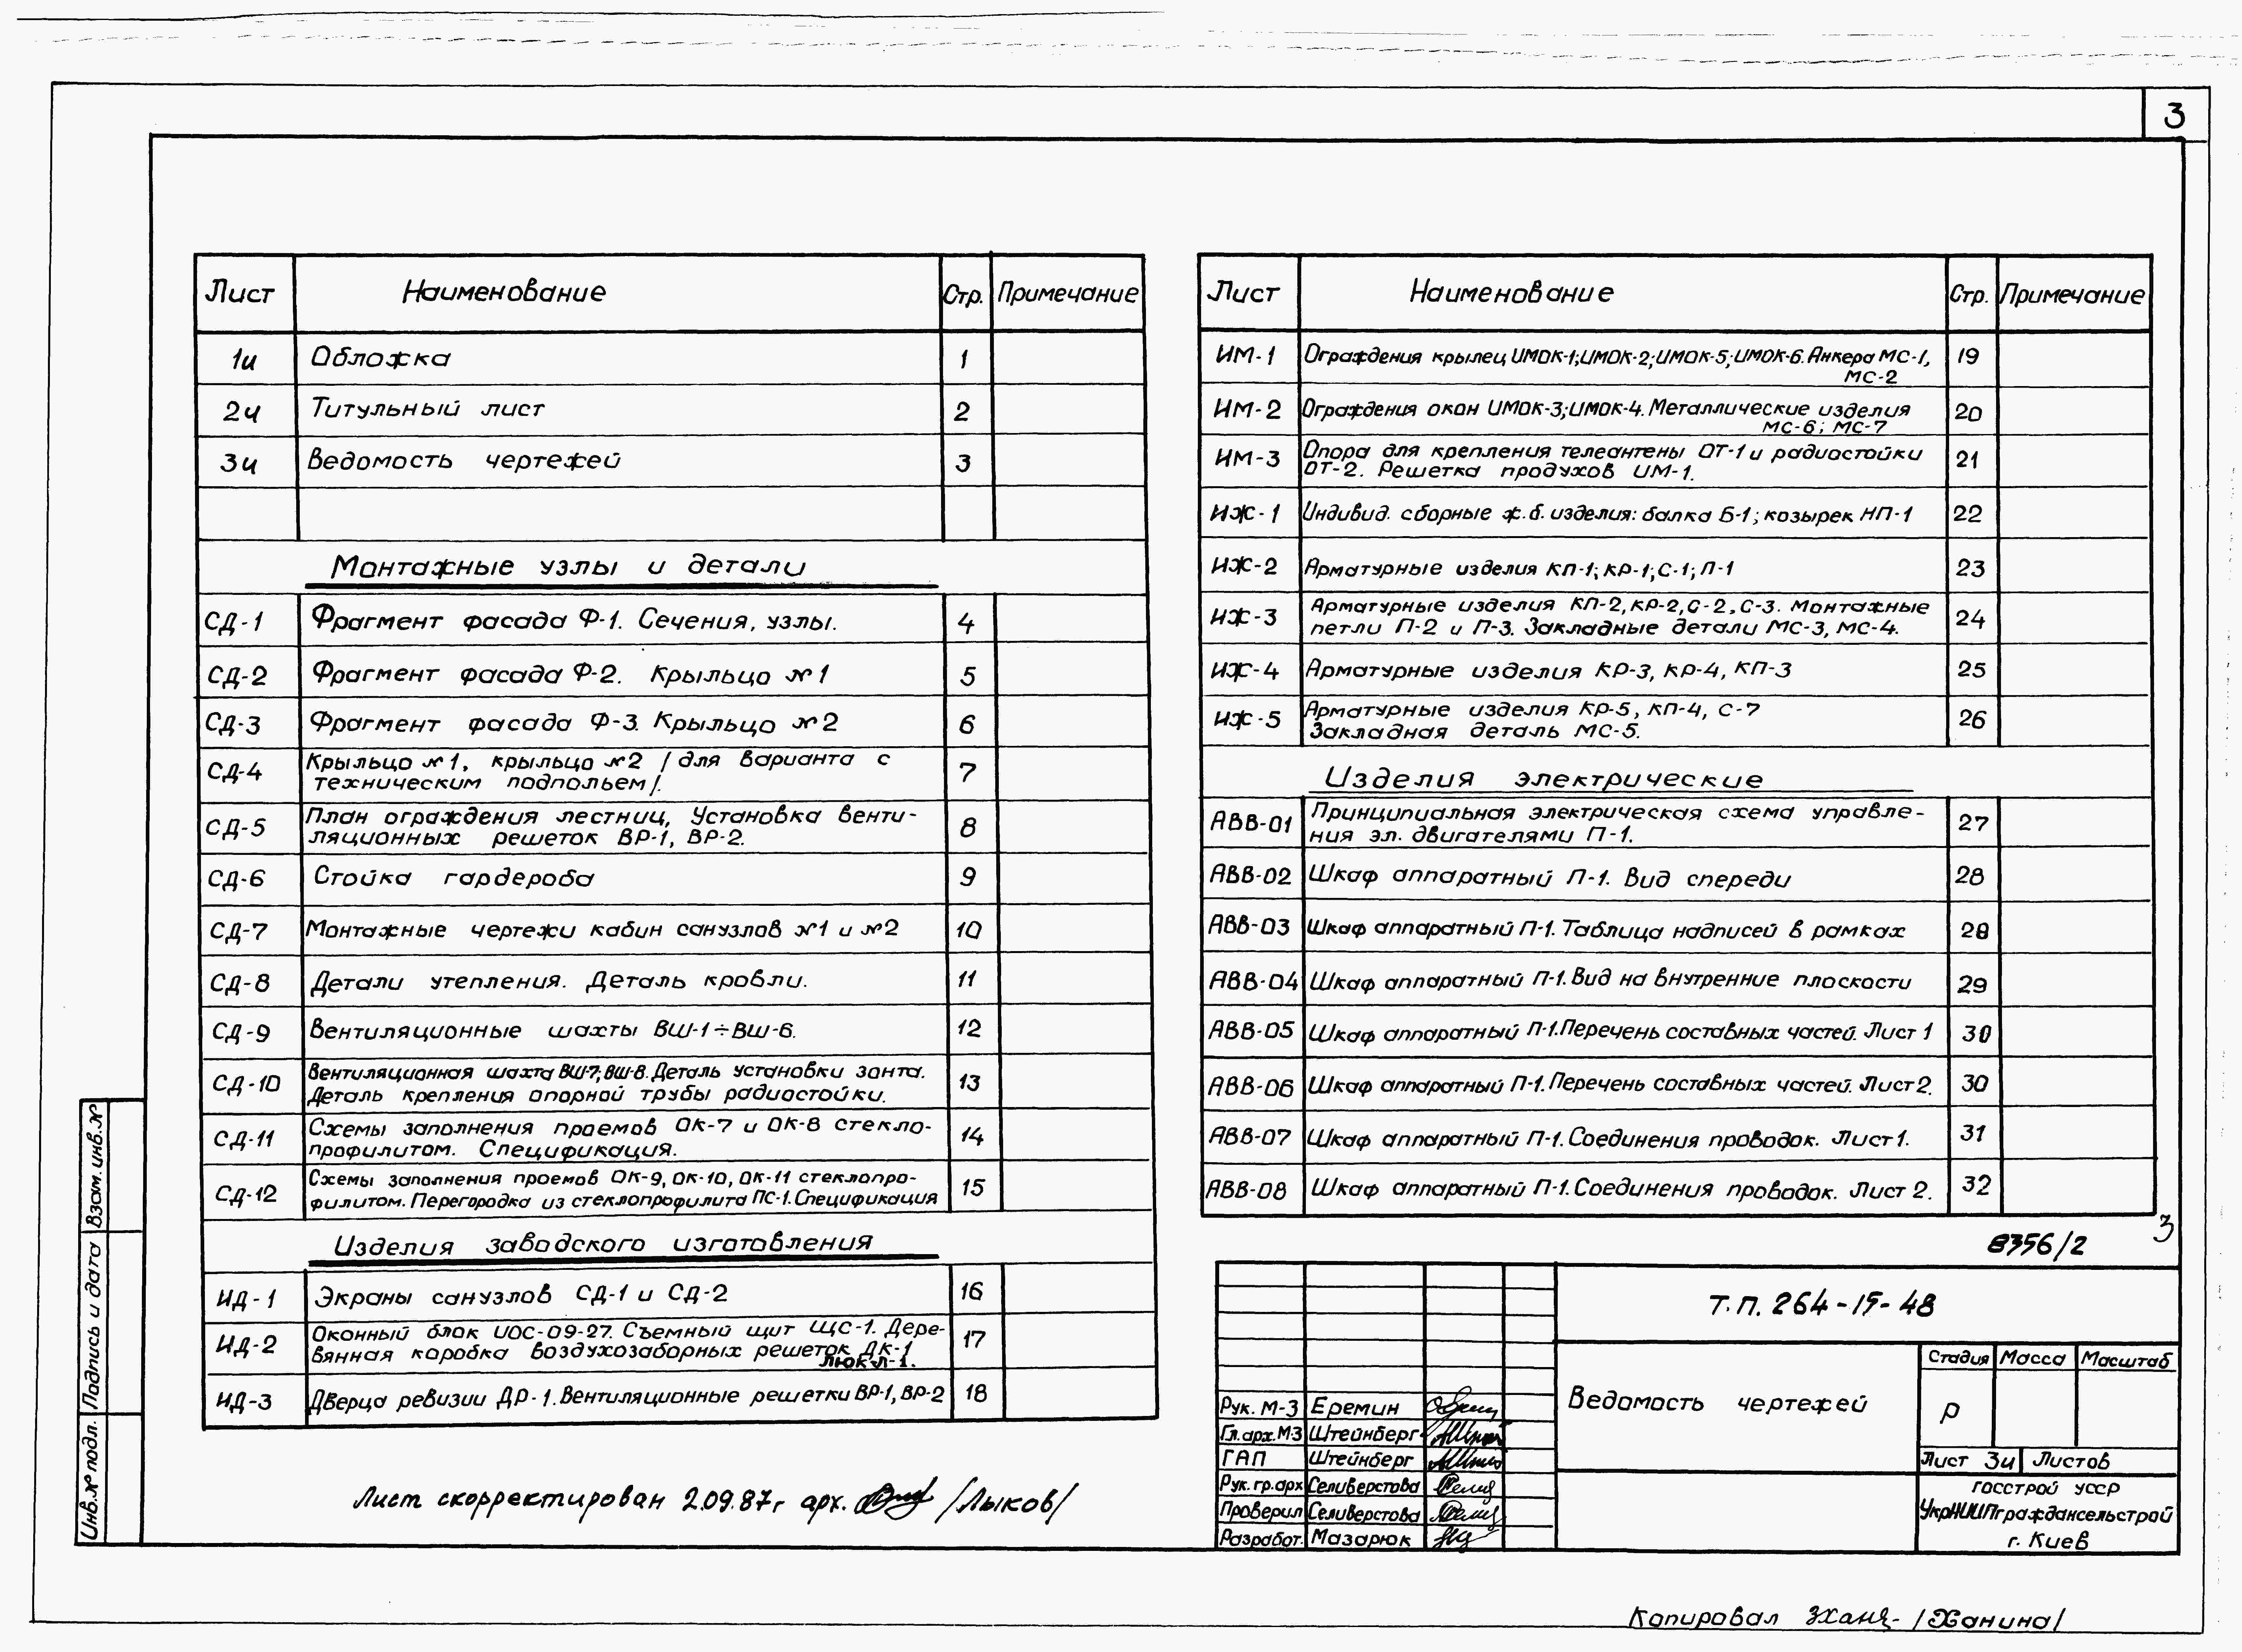 3
Лист Наименование Стр. Примечание
1и Обложка 1
2и Титульный лист 2
3и Ведомость чертежей 3
Монтажные узлы и детали
СД-1 Фрагмент фасада Ф-1. Сечения, узлы. 4
СД-2 Фрагмент фасада Ф-2. Крыльцо №1 5
СД-3 Фрагмент фасада Ф-3. Крыльцо №2 6
СД-4 Крыльцо №1, крыльцо №2 /для варианта с
техническим подпольем/. 7
СД-5 План ограждения лестниц, Установка венти-
ляционных решеток ВР-1, ВР-2. 8
СД-6 Стойка гардероба 9
СД-7 Монтажные чертежи кабин санузлов №1 и №2 10
СД-8 Детали утепления. Деталь кровли. 11
СД-9 Вентиляционные шахты ВШ-1÷ВШ-6. 12
СД-10 Вентиляционная шахта ВШ-7; ВШ-8. Деталь установки зонта.
Деталь крепления опорной трубы радиостойки. 13
СД-11 Схемы заполнения проемов ОК-7 и ОК-8 стекло-
профилитом. Спецификация. 14
СД-12 Схемы заполнения проемов ОК-9, ОК-10, ОК-11 стеклопро-
филитом. Перегородка из стеклопрофилита ПС-1. Спецификация 15
Изделия заводского изготовления
ИД-1 Экраны санузлов СД-1 и СД-2 16
ИД-2 Оконный блок ИОС-09-27. Съемный щит ЩС-1. Дере-
вянная коробка воздухозаборных решеток ДК-1 17
люк Л-1.
ИД-3 Дверца ревизии ДР-1. Вентиляционные решетки ВР-1, ВР-2 18
Лист скорректирован 2.09.87г арх. /Лыков/
Лист Наименование Стр. Примечание
ИМ-1 Ограждения крылец ИМОК-1; ИМОК-2; ИМОК-5; ИМОК-6. Анкера МС-1, 19
МС-2
ИМ-2 Ограждения окон ИМОК-3; ИМОК-4. Металлические изделия 20
МС-6; МС-7
ИМ-3 Опора для крепления телеантены ОТ-1 и радиостойки
ОТ-2. Решетка продухов ИМ-1. 21
ИЖ-1 Индивид. сборные ж.б. изделия: балка Б-1; козырек НП-1 22
ИЖ-2 Арматурные изделия КП-1; КР-1; С-1; П-1 23
ИЖ-3 Арматурные изделия КП-2, КР-2, С-2, С-3. Монтажные
петли П-2 и П-3. Закладные детали МС-3, МС-4. 24
ИЖ-4 Арматурные изделия КР-3, КР-4, КП-3 25
ИЖ-5 Арматурные изделия КР-5, КП-4, С-7
Закладная деталь МС-5. 26
Изделия электрические
АВВ-01 Принципиальная электрическая схема управле-
ния эл. двигателями П-1. 27
АВВ-02 Шкаф аппаратный П-1. Вид спереди 28
АВВ-03 Шкаф аппаратный П-1. Таблица надписей в рамках 28
АВВ-04 Шкаф аппаратный П-1. Вид на внутренние плоскости 29
АВВ-05 Шкаф аппаратный П-1. Перечень составных частей. Лист 1 30
АВВ-06 Шкаф аппаратный П-1. Перечень составных частей. Лист 2. 30
АВВ-07 Шкаф аппаратный П-1. Соединения проводок. Лист 1. 31
АВВ-08 Шкаф аппаратный П-1. Соединения проводок. Лист 2. 32
3
8356/2
Т.П. 264-15-48
Ведомость чертежей
Стадия Масса Масштаб
Р
Лист 3и Листов
Госстрой УССР
УкрНИИПграждансельстрой
г. Киев
Рук. М-3 Еремин
Гл. арх. М3 Штейнберг
ГАП Штейнберг
Рук. гр. арх Селиверстова
Проверил Селиверстова
Разработ. Мазарюк
Взам. инв. №
Подпись и дата
Инв. № подл.
Копировал /Ханина/